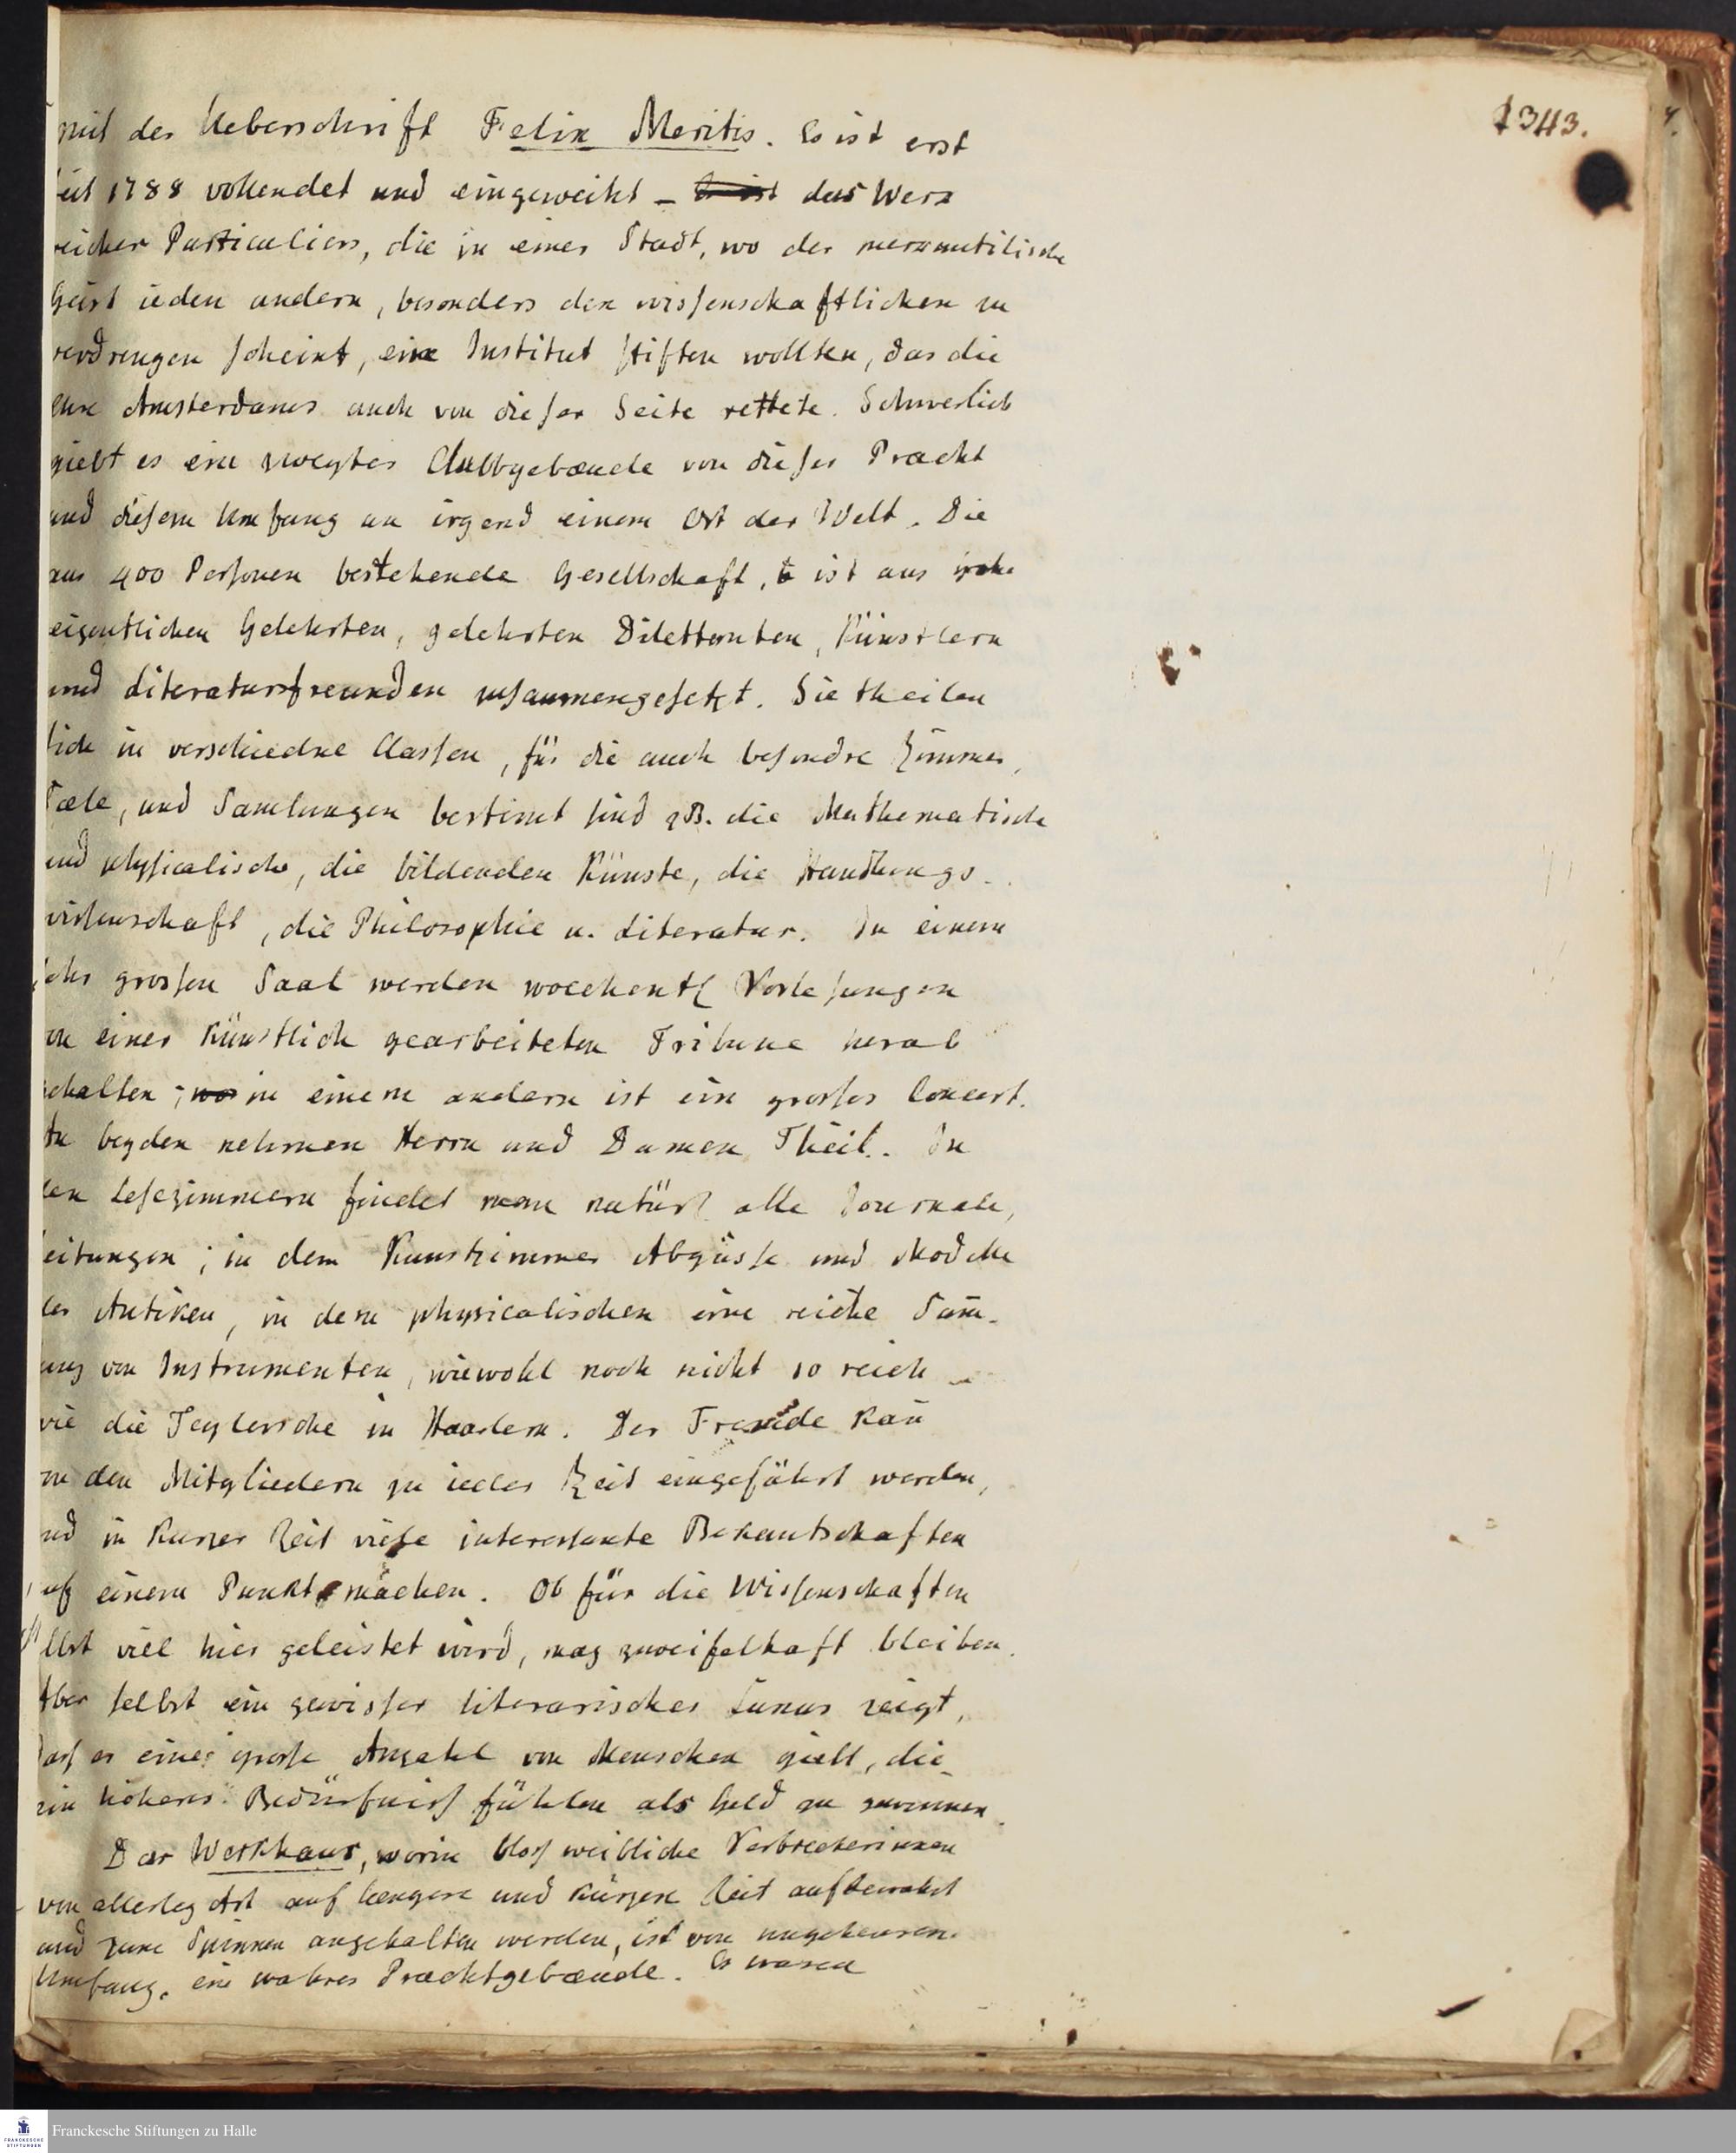 1343.
mit der Ueberschrift Felix Meritis. Es ist erst
seit 1788 vollendet und eingeweiht – Es ist das Werk
reicher Particuliers, die in einer Stadt, wo der merkantilische
Geist ieden andern, besonders den wissenschaftlichen zu
verdrengen scheint, ein Institut stiften wollten, das die
Ehre Amsterdams auch von dieser Seite rettete. Schwerlich
giebt es ein zweytes Clubbgebæude von dieser Pracht
und diesem Umfang an irgend einem Ort der Welt. Die
aus 400 Personen bestehende Gesellschaft, ist aus
eigentlichen Gelehrten, gelehrten Dilettanten, Künstlern
und Literaturfreunden zusammengesetzt. Sie theilen
sich in verschiedne Classen, für die auch besondre Zimmer,
Sæle, und Samlungen bestimt sind zB. die Mathematische
und physicalische, die bildenden Künste, die Handlungs-
wissenschaft, die Philosophie u. Literatur. In einem
sehr grossen Saal werden woechentl Vorlesungen
von einer künstlich gearbeiteten Tribune herab
gehalten; wo in einem andern ist ein grosses Concert.
In beyden nehmen Herrn und Damen Theil. In
den Lesezimmern findet man natürl alle Journale,
Zeitungen; in dem Kunstzimmer Abgüsse und Modelle
der Antiken, in dem physicalischen eine reiche Sam̄-
lung von Instrumenten, wiewohl noch nicht so reich
wie die Teylersche in Haarlem. Der Fremde kan̄
von den Mitgliedern zu ieder Zeit eingeführt werden,
und in kurzer Zeit viele interessante Bekantschaften
auf einem Punkt machen. Ob für die Wissenschaften
selbst viel hier geleistet wird, mag zweifelhaft bleiben.
Aber selbst ein gewisser literarischer Luxus zeigt,
dass es eine grosse Anzahl von Menschen giebt, die
ein höheres Bedürfniss fühlen als Geld zu gewinnen.
Das Werkhaus, worin bloss weibliche Verbrecherinnen
von allerley Art auf længere und kürzere Zeit aufbewahrt
und zum Spinnen angehalten werden, ist von ungeheuren
Umfang, ein wahres Prachtgebæude. Es waren
Franckesche Stiftungen zu Halle